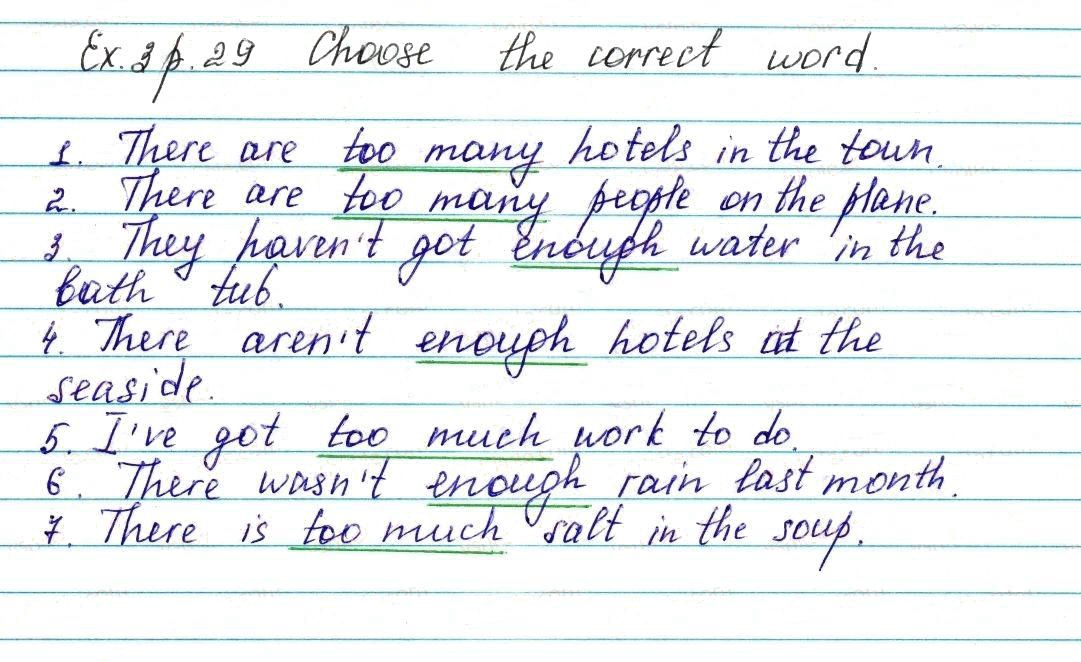 Ex. 3 p. 29 Choose the correct word.
1. There are too many hotels in the town.
2. There are too many people on the plane.
3. They haven't got enough water in the
bath tub.
4. There aren't enough hotels at the
seaside.
5. I've got too much work to do.
6. There wasn't enough rain last month.
7. There is too much salt in the soup.